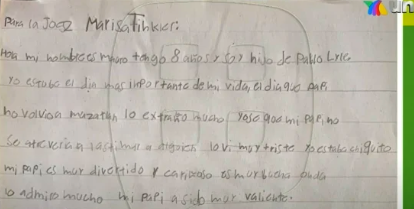 Para la Joez Marisa Tinkler:
Hola mi nombre es mauro tengo 8 años y soy hijo de Pablo Lyle
Yo estube el dia mas importante de mi vida, el dia que papi
no volvio a mazatlan lo extraño mucho yo se que mi papi no
se atreveria a lastimar a alguien lo vi muy triste yo estaba chiquito
mi papi es muy divertido y cariñoso es muy buena onda
lo admiro mucho mi papi a sido muy valiente.
un